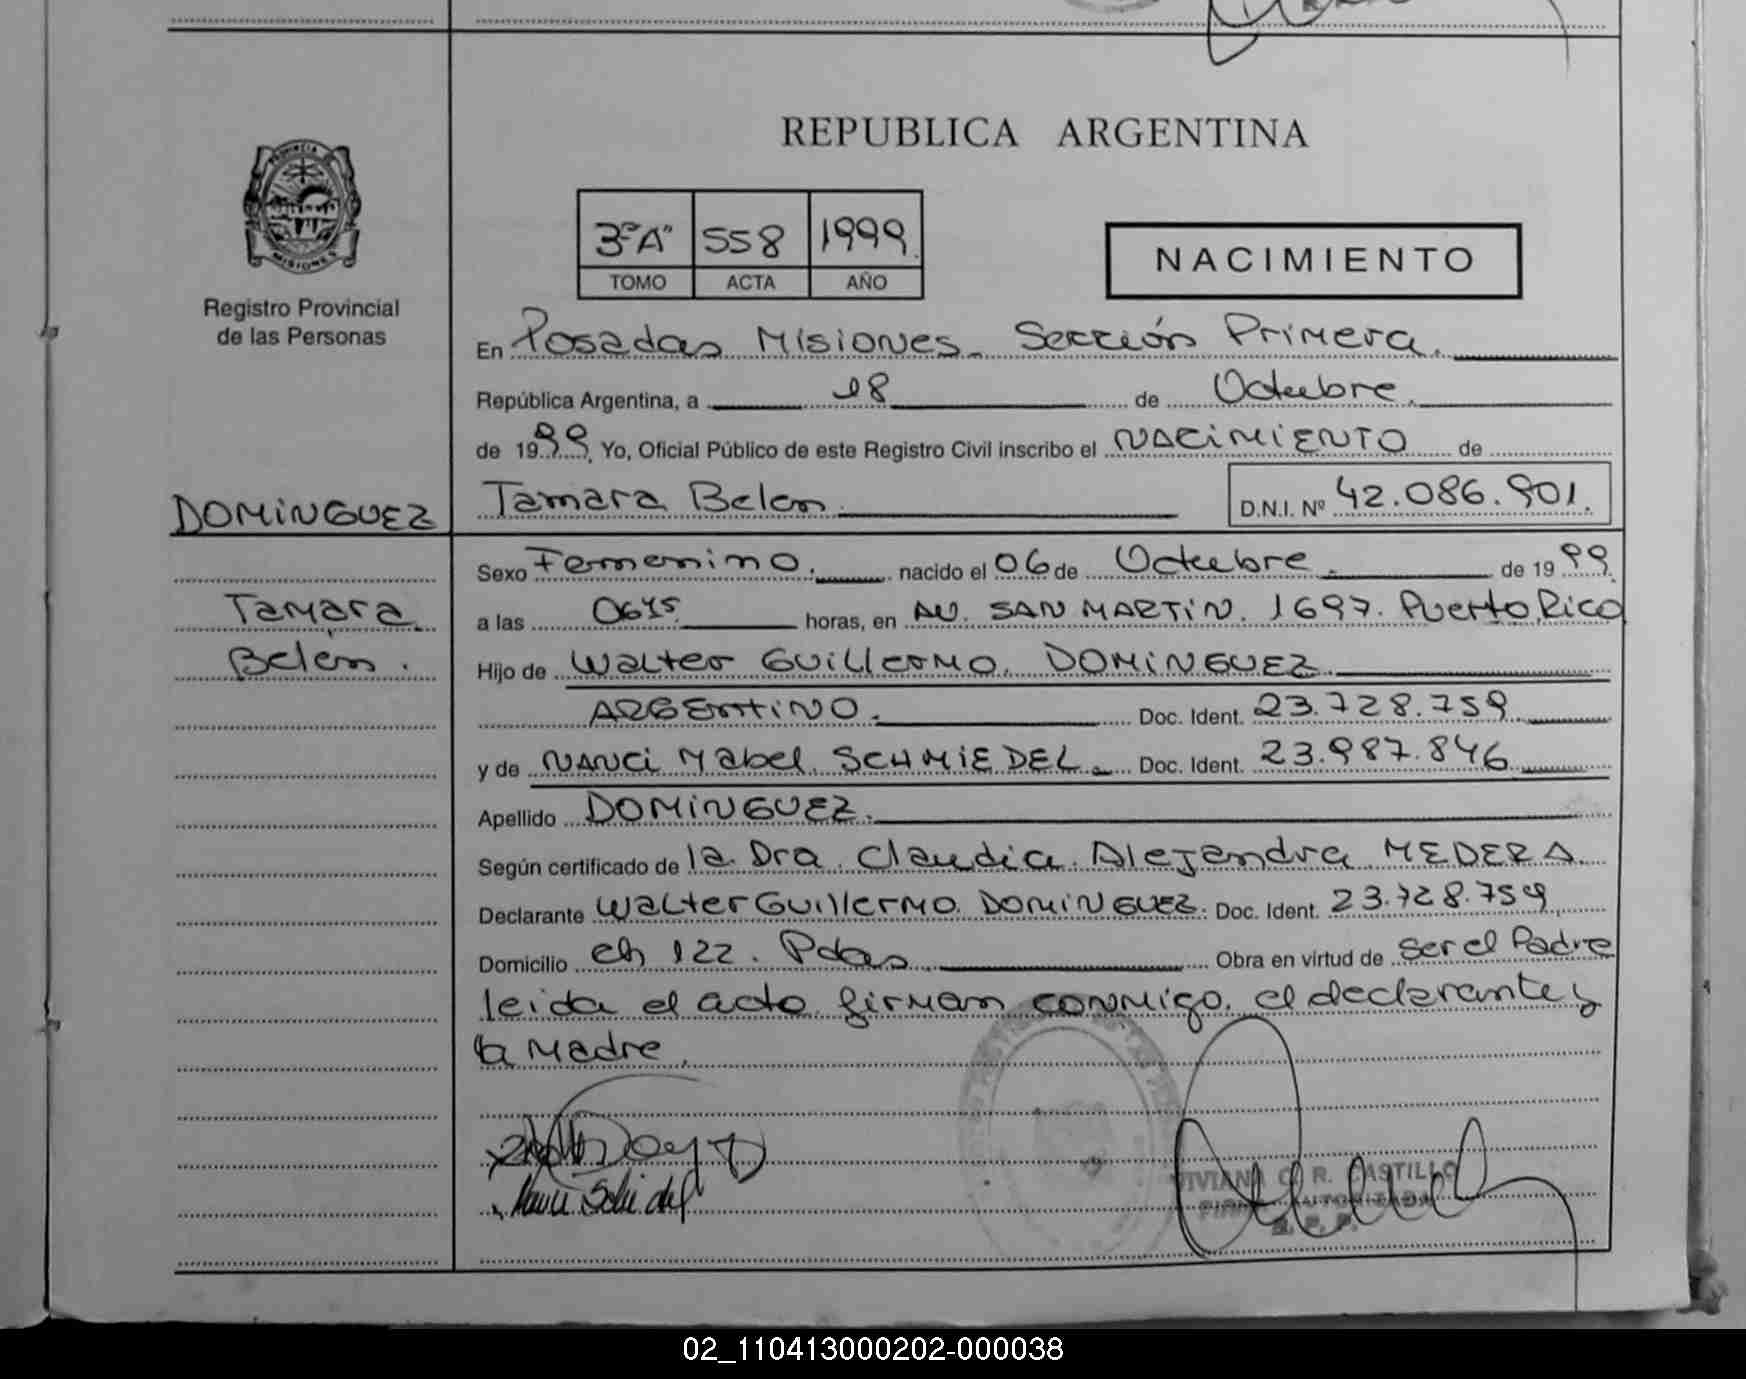 REPUBLICA ARGENTINA
PROVINCIA DE
MISIONES
Registro Provincial
de las Personas
3º"A" 558 1999.
TOMO ACTA AÑO
NACIMIENTO
En Posadas Misiones. Sección Primera.
República Argentina, a 18 de Octubre.
de 1999. Yo, Oficial Público de este Registro Civil inscribo el NACIMIENTO de
DOMINGUEZ
Tamara Belen D.N.I. Nº 42.086.901.
Tamara
Belén.
Sexo Femenino. nacido el 06 de Octubre. de 1999.
a las 0645 horas, en AV. SAN MARTIN. 1697. Puerto Rico
Hijo de Walter Guillermo. DOMINGUEZ
ARGENTINO. Doc. Ident. 23.728.759
y de NANCI Mabel. SCHMIEDEL. Doc. Ident. 23.987.846
Apellido DOMINGUEZ.
Según certificado de la Dra. Claudia. Alejandra MEDERA.
Declarante Walter Guillermo DOMINGUEZ. Doc. Ident. 23.728.759
Domicilio ch 122. Pdas Obra en virtud de ser el Padre
leida el acta firman conmigo. el declarante y
la Madre.
VIVIANA C. R. CASTILLO
FIRMA AUTORIZADA
R. P. P.
02_110413000202-000038